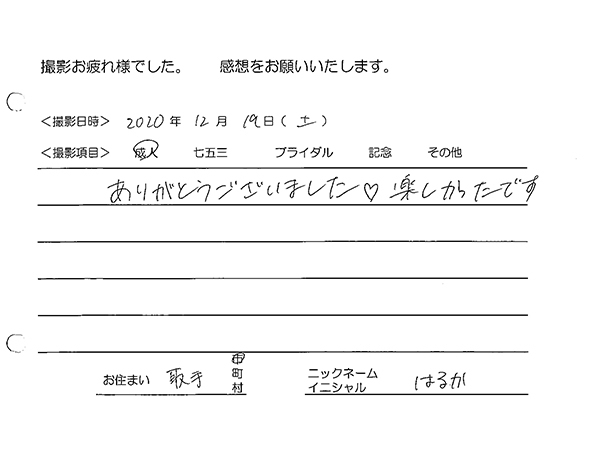 撮影お疲れ様でした。 感想をお願いいたします。
＜撮影日時＞ 2020年 12月 19日(土)
＜撮影項目＞ 成人 七五三 ブライダル 記念 その他
ありがとうございました♡ 楽しかったです
お住まい 取手 市町村 ニックネーム イニシャル はるか